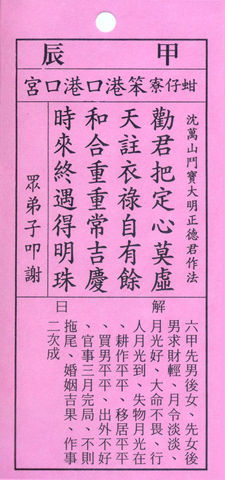 甲辰
蚶仔寮笨港口港口宮
沈萬山鬥寶大明正德君作法
勸君把定心莫虛
天註衣祿自有餘
和合重重常吉慶
時來終遇得明珠
眾弟子叩謝
解曰
六甲先男後女、先女後
男求財輕、月令淡淡、
月光好、大命不畏、行
人月光到、失物月光在
、耕作平平、移居平平
、買男平平、出外不好
、官事三月完局、不則
拖尾、婚姻吉果、作事
二次成